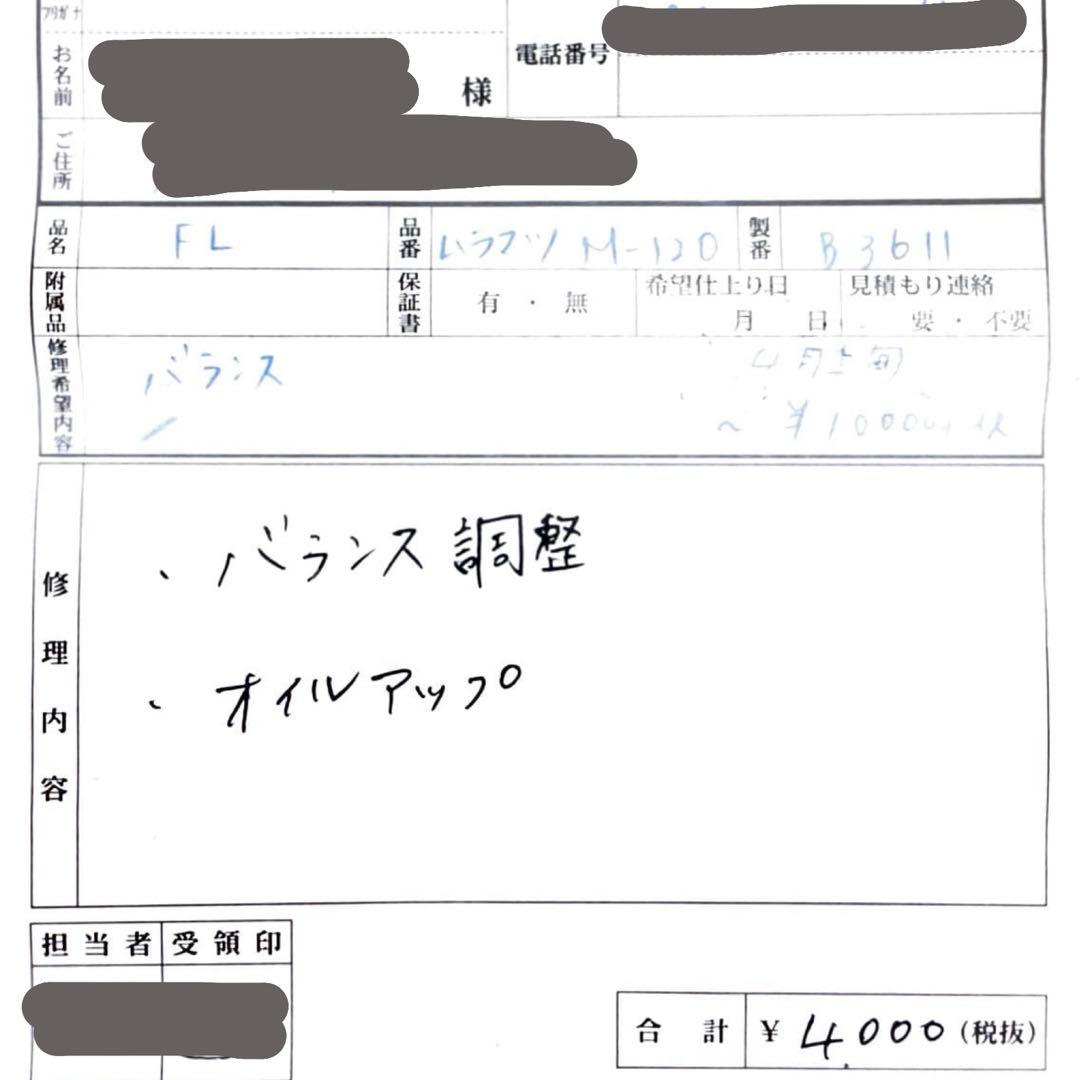 フリガナ
お名前 様 電話番号
ご住所
品名 FL 品番 ムラマツ M-120 製番 B3611
附属品 保証書 有・無 希望仕上り日 月 日 見積もり連絡 要・不要
修理希望内容 バランス 4月上旬
~ ¥10000
修理内容
・バランス調整
・オイルアップ
担当者 受領印
合計 ¥4,000(税抜)